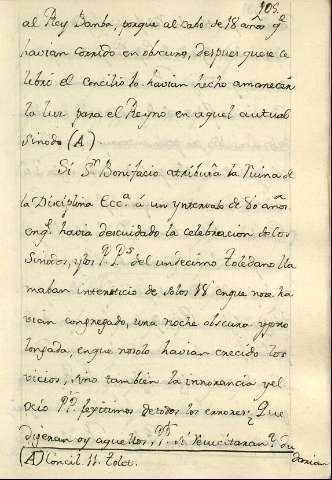 103.
al Rey Banba, porque al cabo de 18 años qe
havian corrido en obscuro, despues que se ce
lebró el concilio lo havian hecho amanecer
la luz para el Reyno en aquel actual
Sinodo (A)
Si Sn Bonifacio atribuía la Ruina de
la Disciplina Ecca á un yntervalo de 80 años
enq. havia descuidado la celebracion de los
Sinodos, y los P.Ps del undecimo Toledano lla
maban intersticio de solos 18 en que no se ha
vian congregado, una noche obscura y pro
longada, en que no solo havian crecido los
vicios, sino tambien la innorancia y el
ocio Pe. lexitimos de todos los errores; Que
dijeran oy aquellos PPs si resucitaran? du
darian
(A) Concil. 11. Tolet.